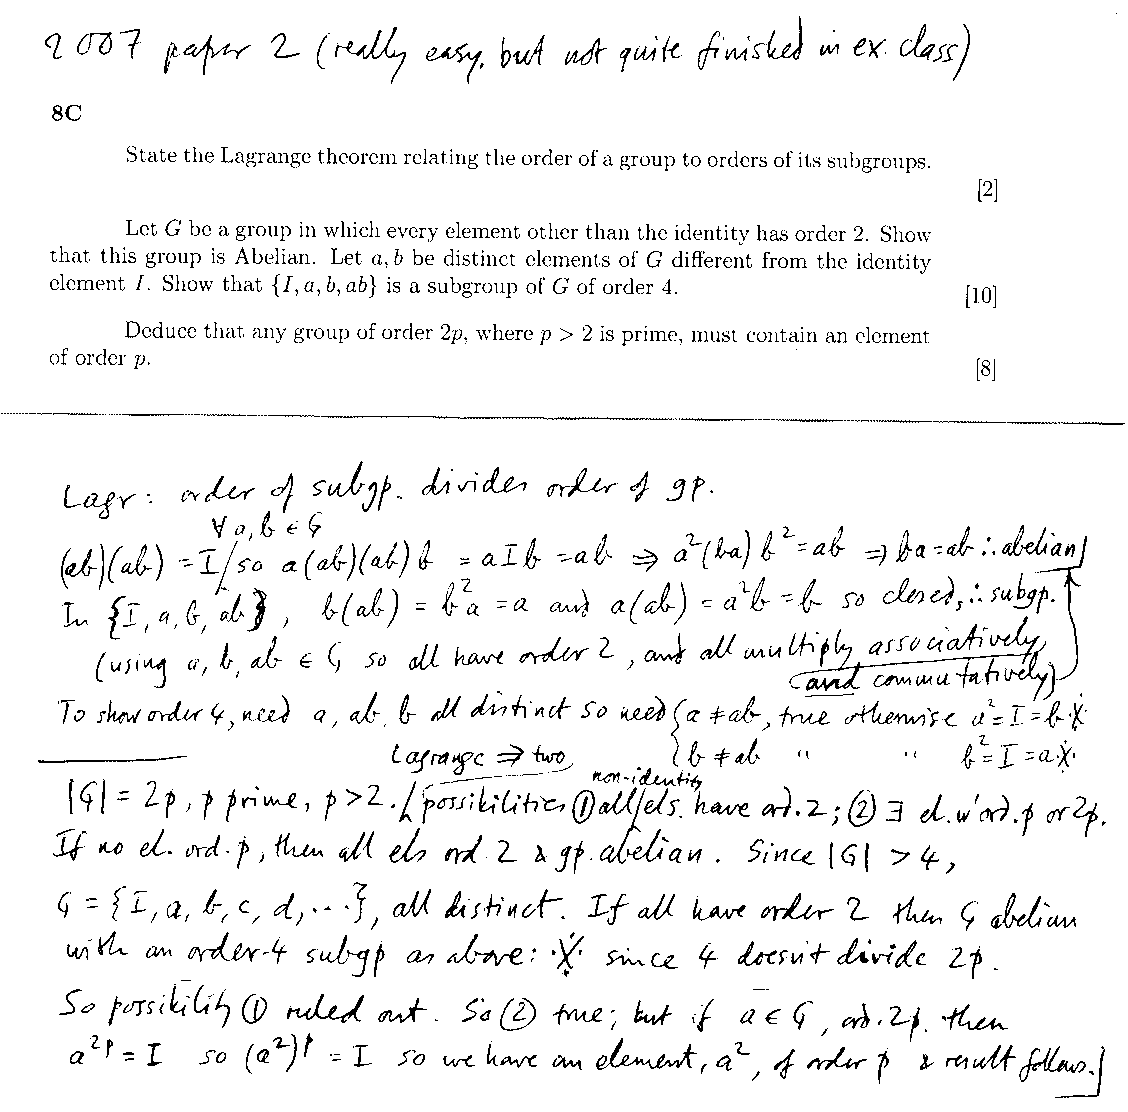 2007 paper 2 (really easy, but not quite finished in ex. class)
8C
State the Lagrange theorem relating the order of a group to orders of its subgroups.
[2]
Let G be a group in which every element other than the identity has order 2. Show
that this group is Abelian. Let a, b be distinct elements of G different from the identity
element I. Show that {I, a, b, ab} is a subgroup of G of order 4.
[10]
Deduce that any group of order 2p, where p > 2 is prime, must contain an element
of order p.
[8]
Lagr: order of subgp. divides order of gp.
∀ a, b ∈ G
(ab)(ab) = I / so a(ab)(ab)b = aIb = ab ⇒ a²(ba)b² = ab ⇒ ba = ab ∴ abelian
In {I, a, b, ab}, b(ab) = b²a = a and a(ab) = a²b = b so closed, ∴ subgp.
(using a, b, ab ∈ G so all have order 2, and all multiply associatively
and commutatively)
To show order 4, need a, ab, b all distinct so need { a ≠ ab, true otherwise a² = I = b ※
b ≠ ab " " b² = I = a ※
Lagrange ⇒ two
non-identity
|G| = 2p, p prime, p > 2. / possibilities ① all / els. have ord. 2; ② ∃ el. w' ord. p or 2p.
If no el. ord. p, then all els ord 2 & gp. abelian. Since |G| > 4,
G = {I, a, b, c, d, ...}, all distinct. If all have order 2 then G abelian
with an order-4 subgp as above: ※ since 4 doesn't divide 2p.
So possibility ① ruled out. So ② true; but if a ∈ G, ord. 2p. then
a²ᵖ = I so (a²)ᵖ = I so we have an element, a², of order p & result follows.